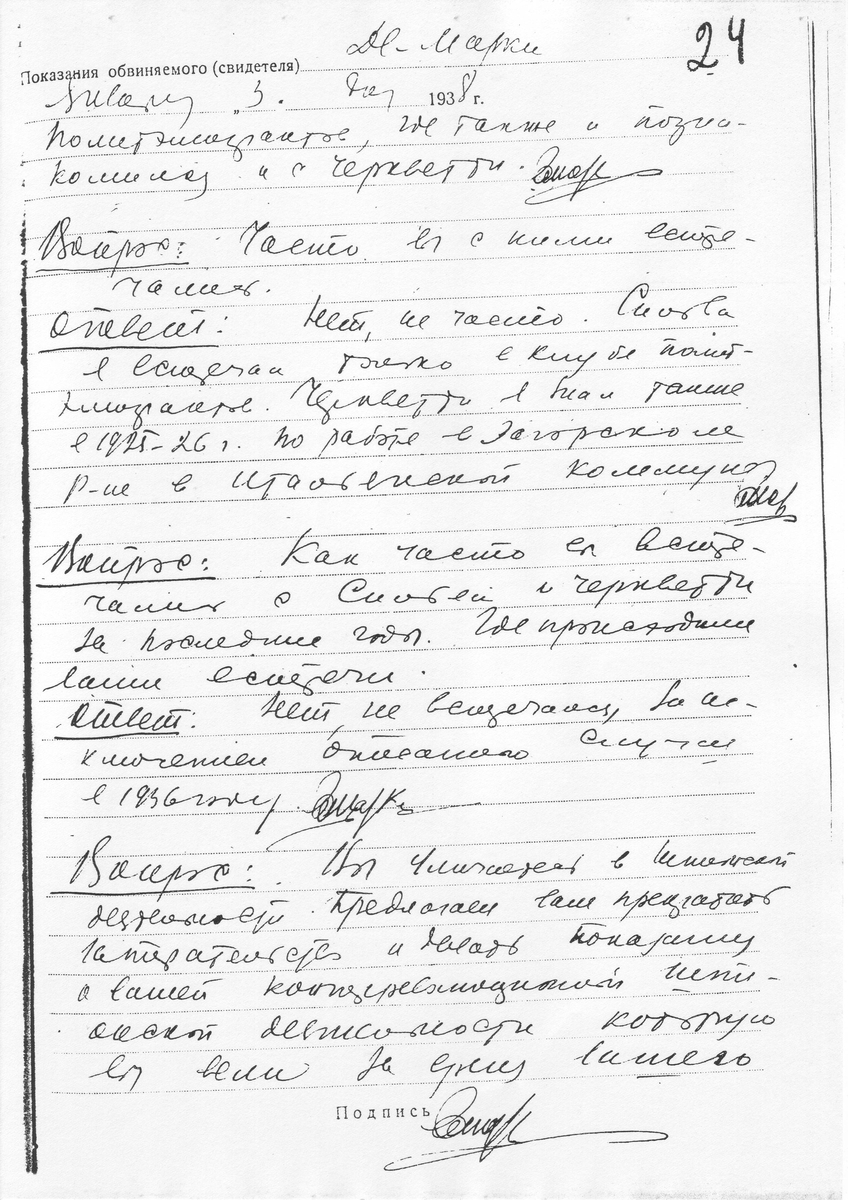 24
Де-Марки
Показания обвиняемого (свидетеля)
„3. 1938 г.
Политэмигрантов, где также и позна-
комился и с Черкветти.
Вопрос: Часто вы с ними встре-
чались.
Ответ: Нет, не часто.
я встречал только в клубе полит-
эмигрантов. Черкветти я знал также
в 1925-26 г. по работе в Загорском
р-не в Итальянской коммуне
Вопрос: Как часто вы встре-
чались с и Черкветти
за последние годы. Где происходили
ваши встречи.
Ответ: Нет, не встречались, за ис-
ключением описанного случая
в 1936 году.
Вопрос: Вы уличаетесь в шпионской
деятельности. Предлагаем вам прекратить
запирательство и давать показания
о вашей контрреволюционной шпи-
онской деятельности которую
вы вели за время вашего
Подпись